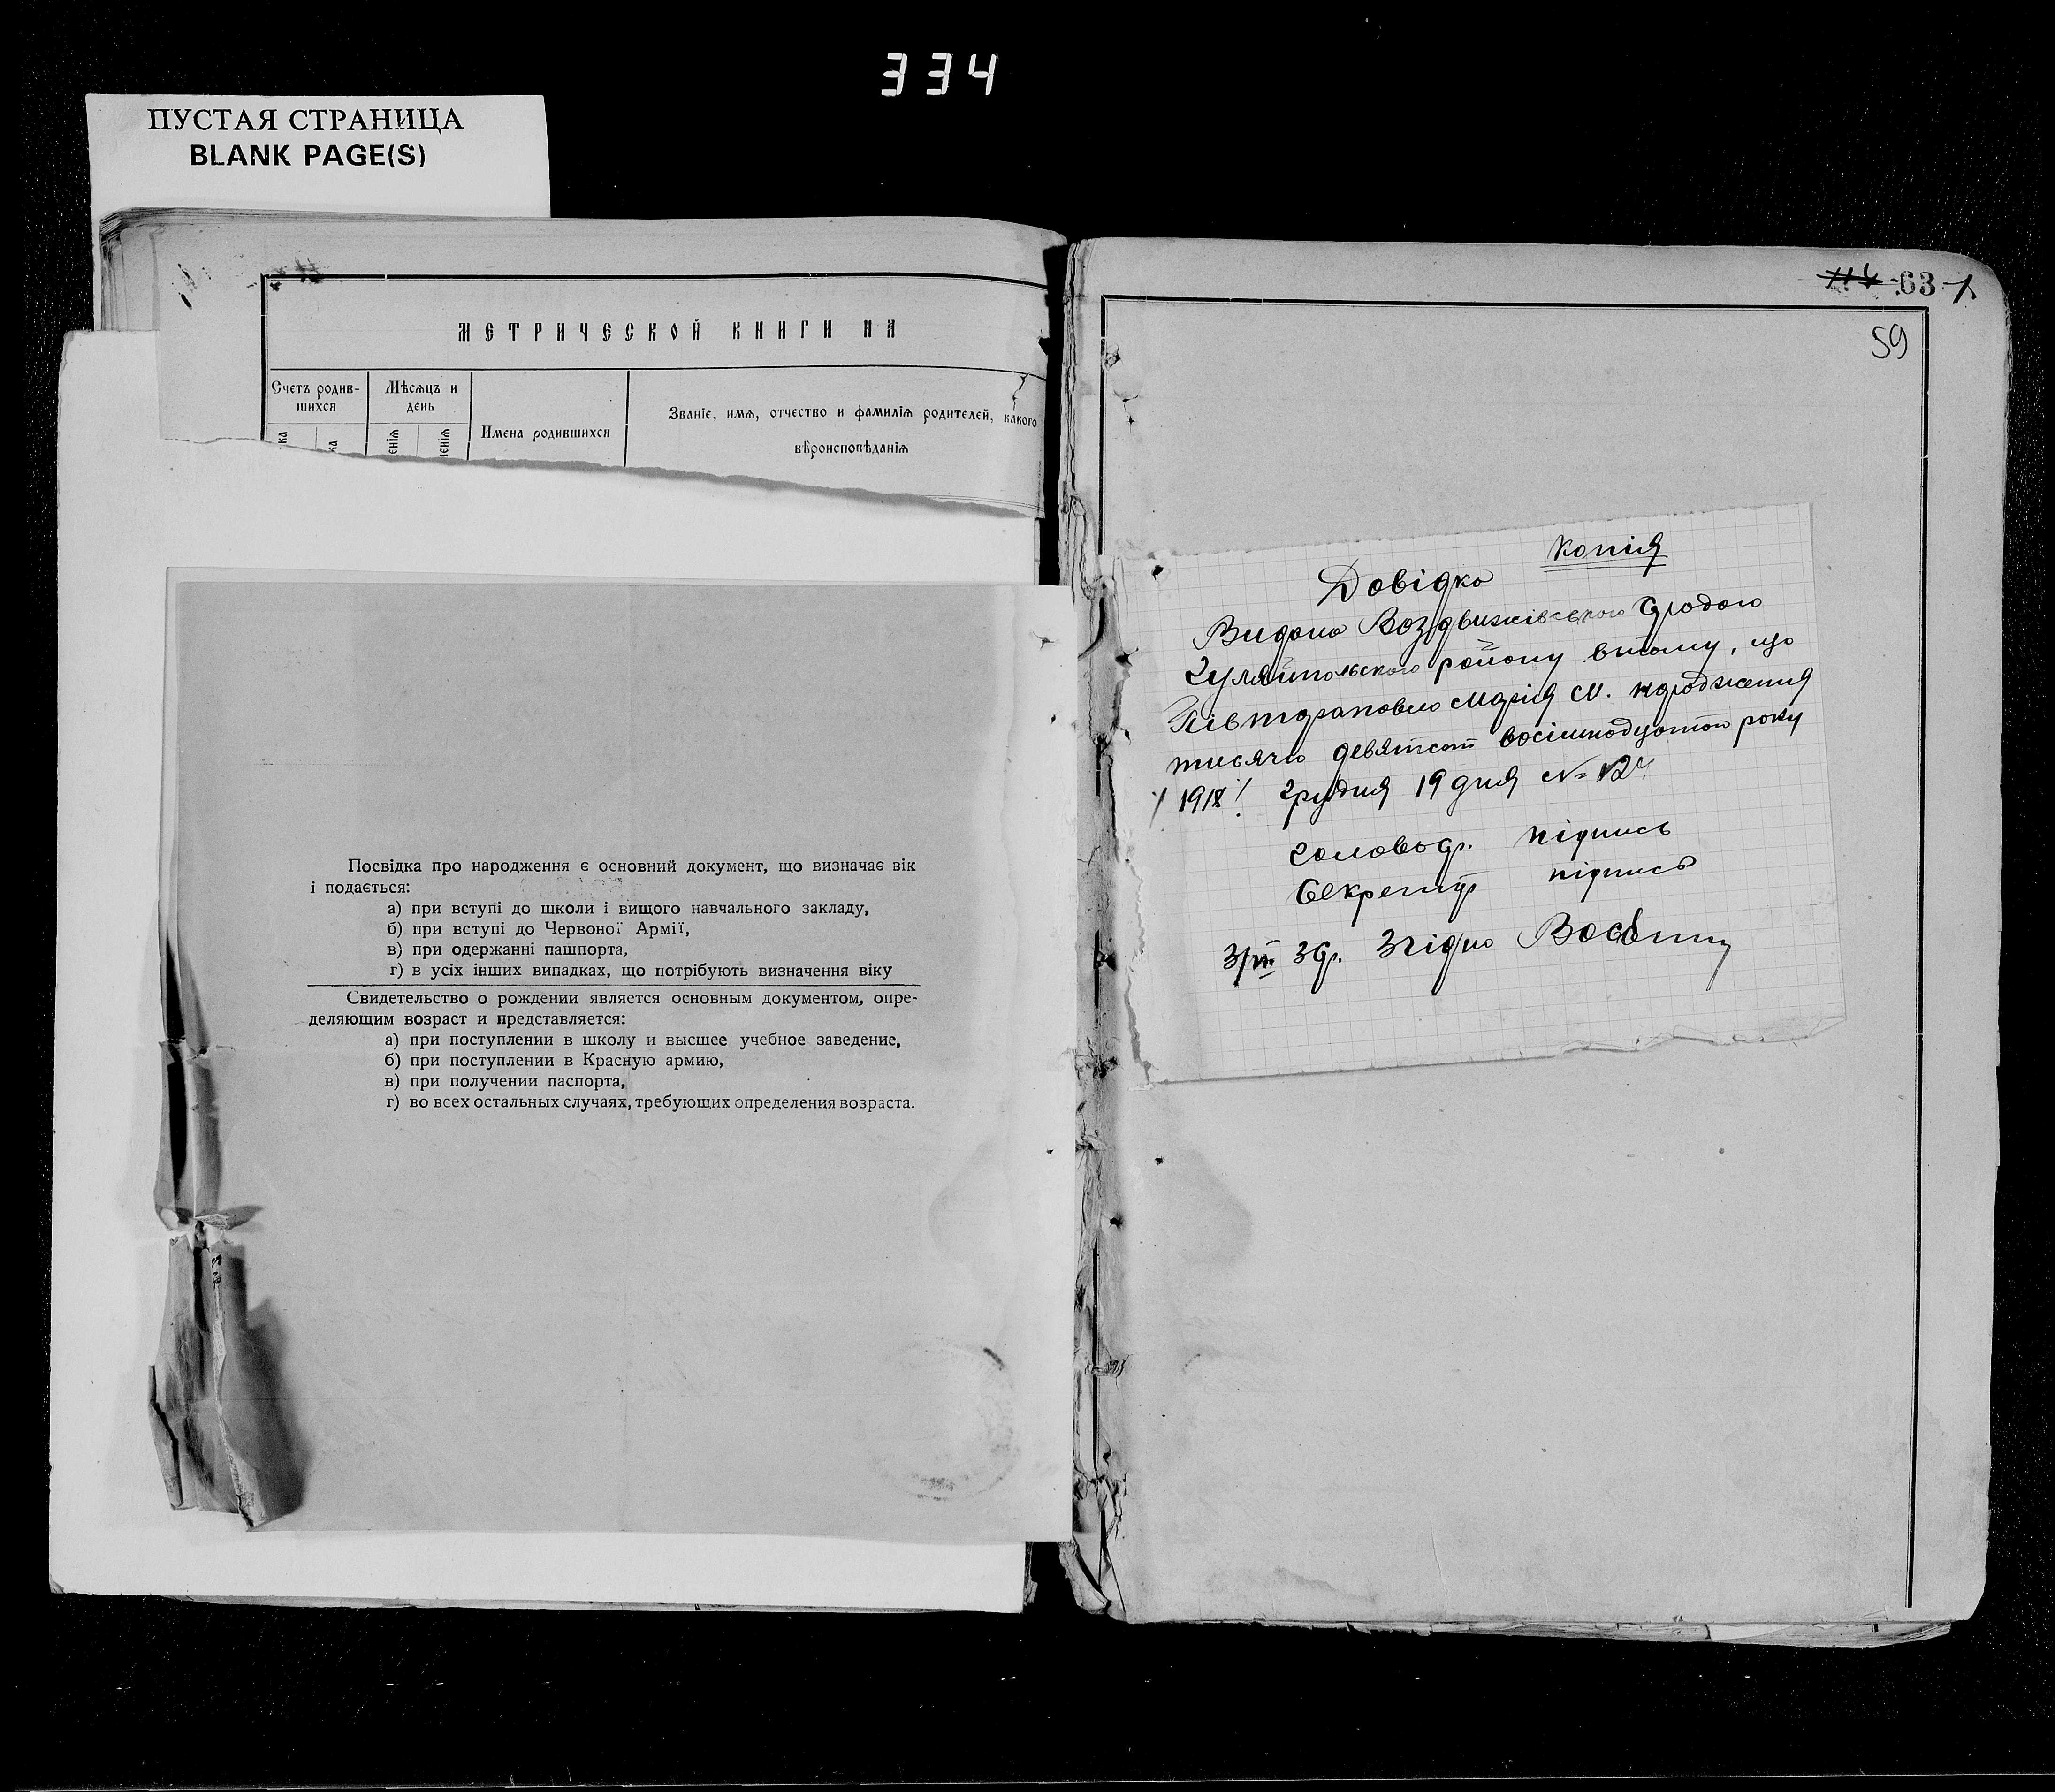 334
ПУСТАЯ СТРАНИЦА
BLANK PAGE(S)
МЕТРИЧЕСКОЙ КНИГИ НА
Счетъ родив-
шихся
Мѣсяцъ и
день
Имена родившихся
Званіе, имя, отчество и фамилія родителей, какого
вѣроисповѣданія
Посвідка про народження є основний документ, що визначає вік
і подається:
а) при вступі до школи і вищого навчального закладу,
б) при вступі до Червоної Армії,
в) при одержанні пашпорта,
г) в усіх інших випадках, що потрібують визначення віку
Свидетельство о рождении является основным документом, опре-
деляющим возраст и представляется:
а) при поступлении в школу и высшее учебное заведение,
б) при поступлении в Красную армию,
в) при получении паспорта,
г) во всех остальных случаях, требующих определения возраста.
63
59
Копія
Довідка
Видана Воздвижівською
Гуляйпольского району втому, що
Марія М. народження
тисяча девятсот року
1918 Грудня 19 дня №
підпись
Секретар підпись
Згідно